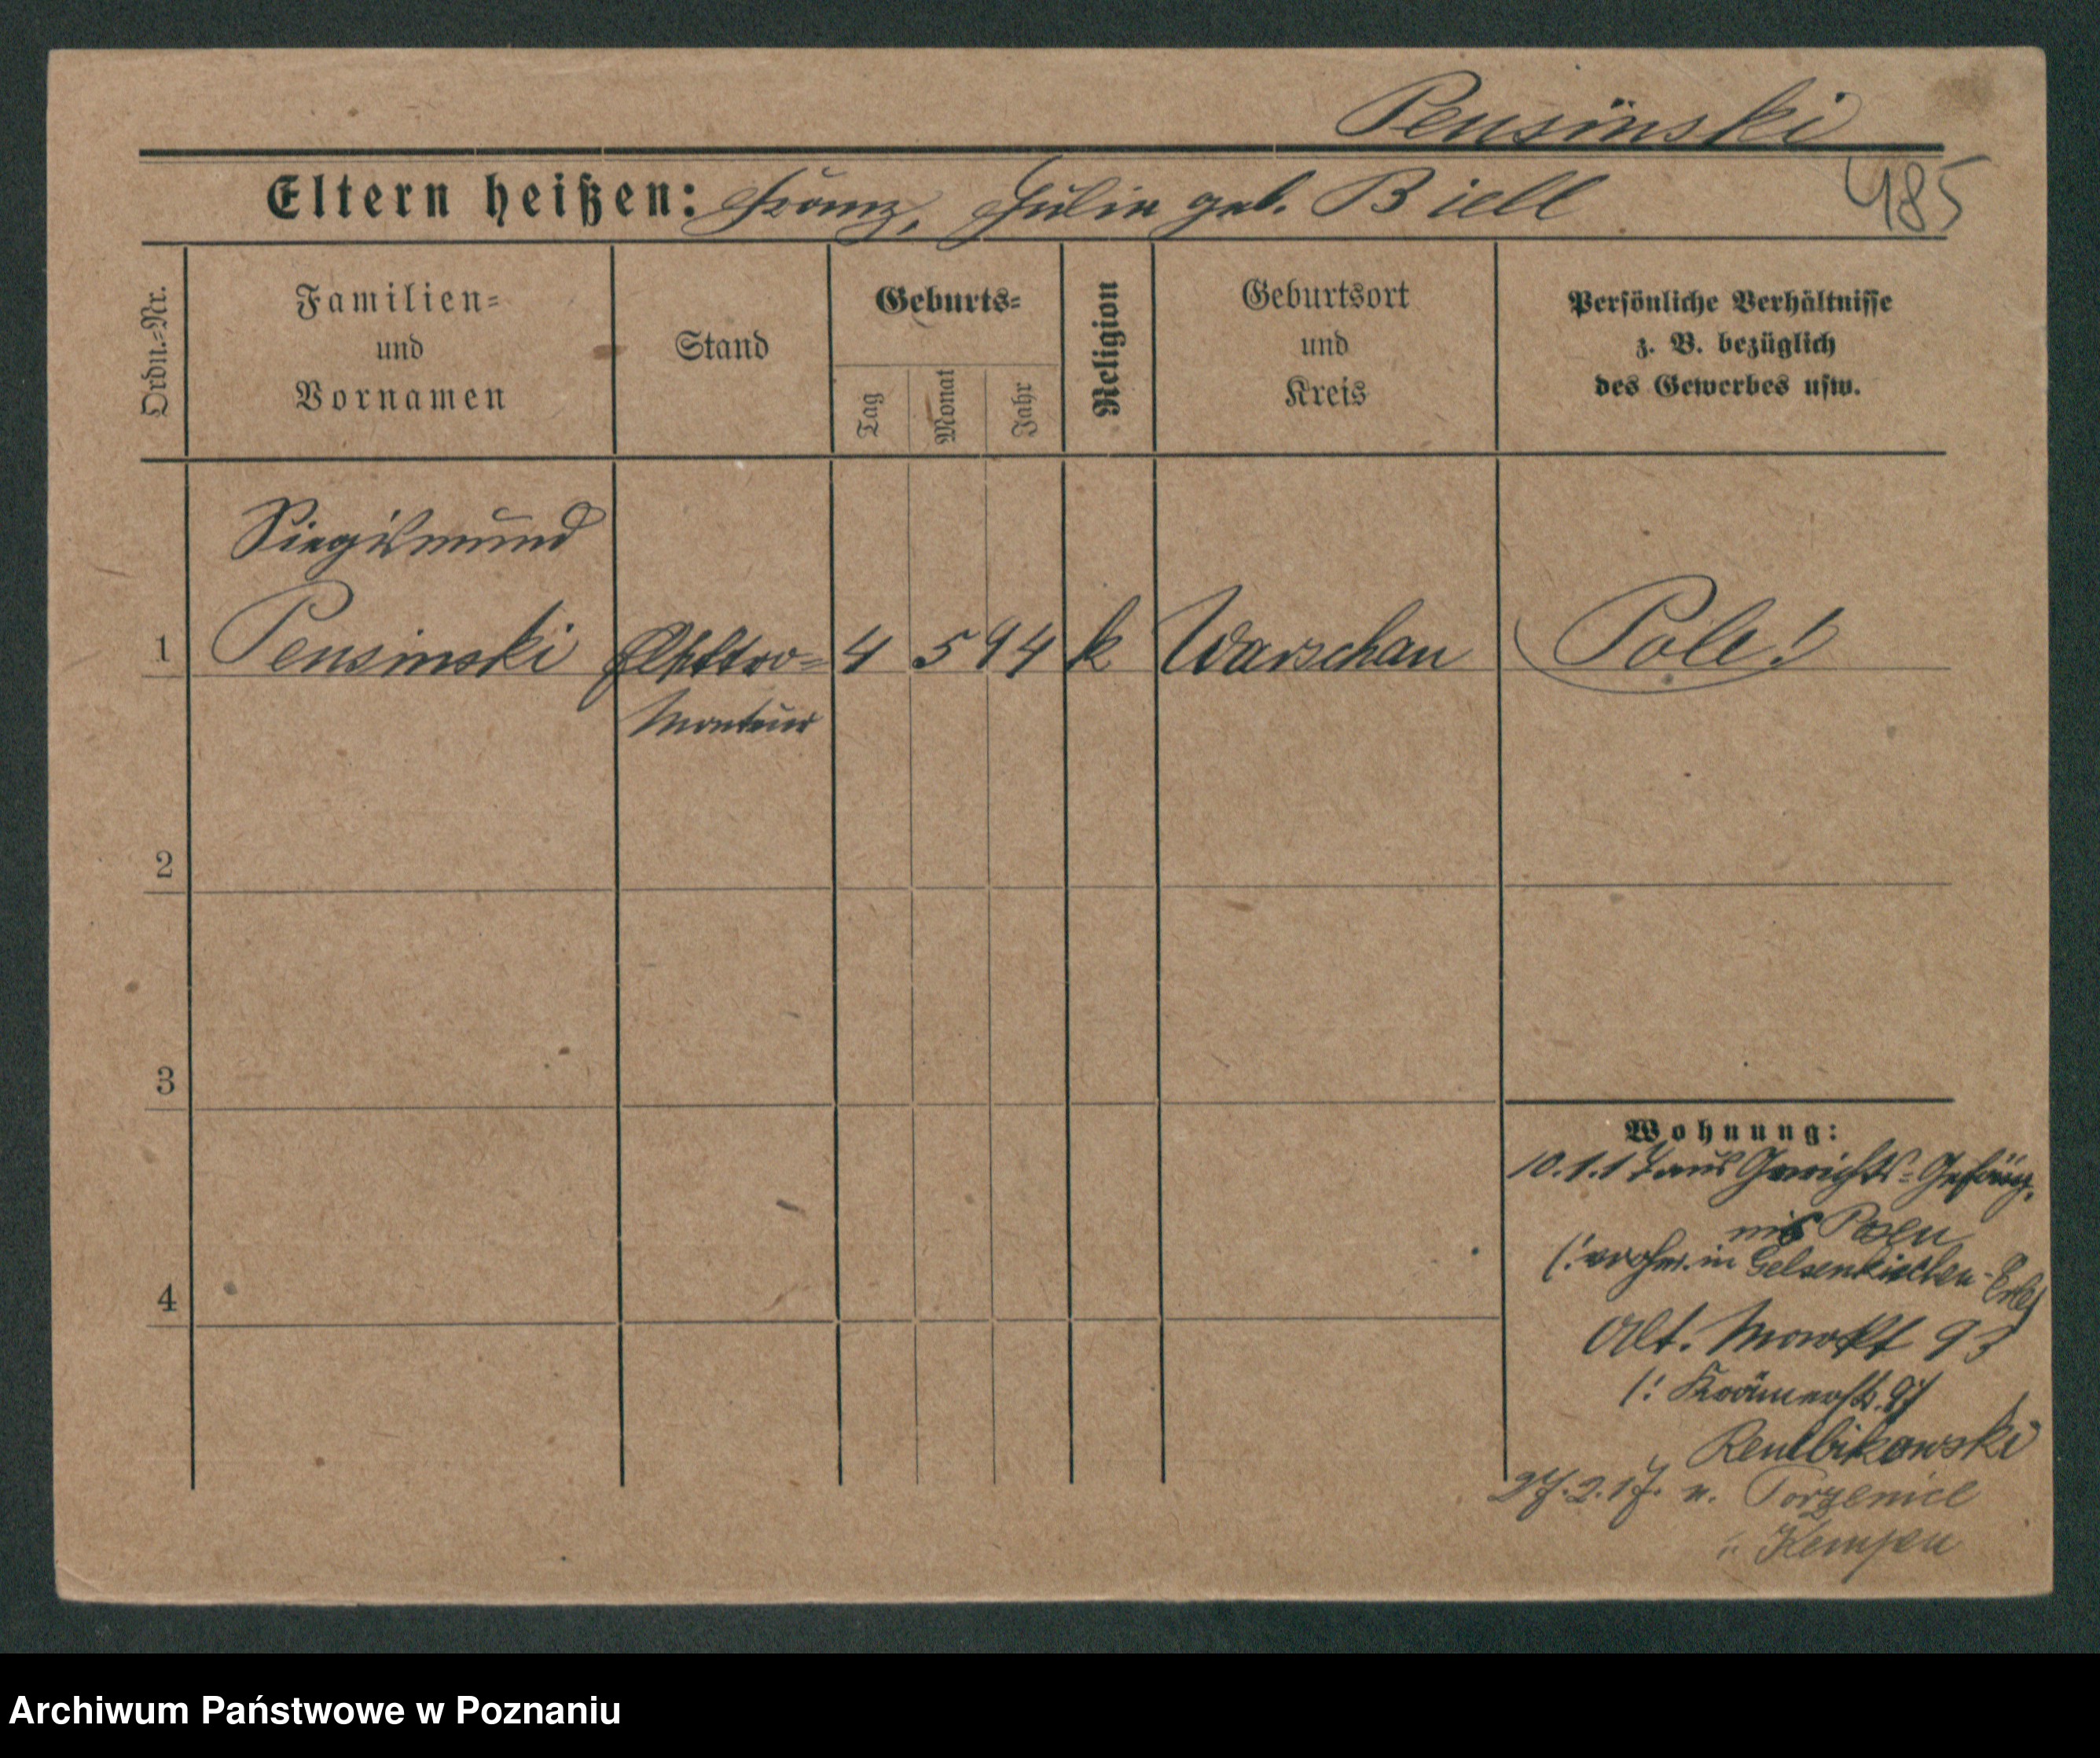 Pensinski
485
Eltern heißen: Franz, Julie geb. Biell
Ordn.-Nr.
Familien-
und
Vornamen
Stand
Geburts-
Tag
Monat
Jahr
Religion
Geburtsort
und
Kreis
Persönliche Verhältnisse
z. B. bezüglich
des Gewerbes usw.
Siegismund
1 Pensinski Elektro- 4 5 94 k Warschau Pole!
Monteur
2
3
4
Wohnung:
10.1.17 aus Gerichts-Gefäng.
nis Posen
(: wohn. in Gelsenkirchen-Erle
Alt. Markt 93
/: Krämerstr.
27.2.17. n.
Kempen
Archiwum Państwowe w Poznaniu